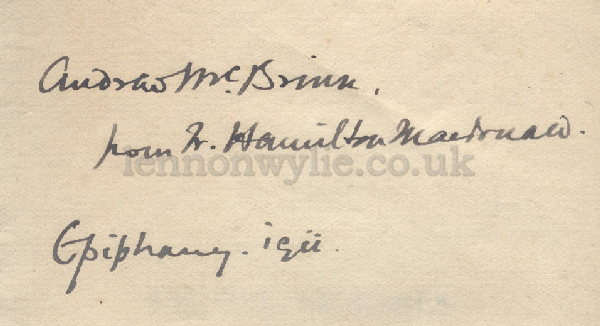 Andrew McBrinn,
from W. Hamilton Macdonald.
lennonwylie.co.uk
Epiphany. 1911.